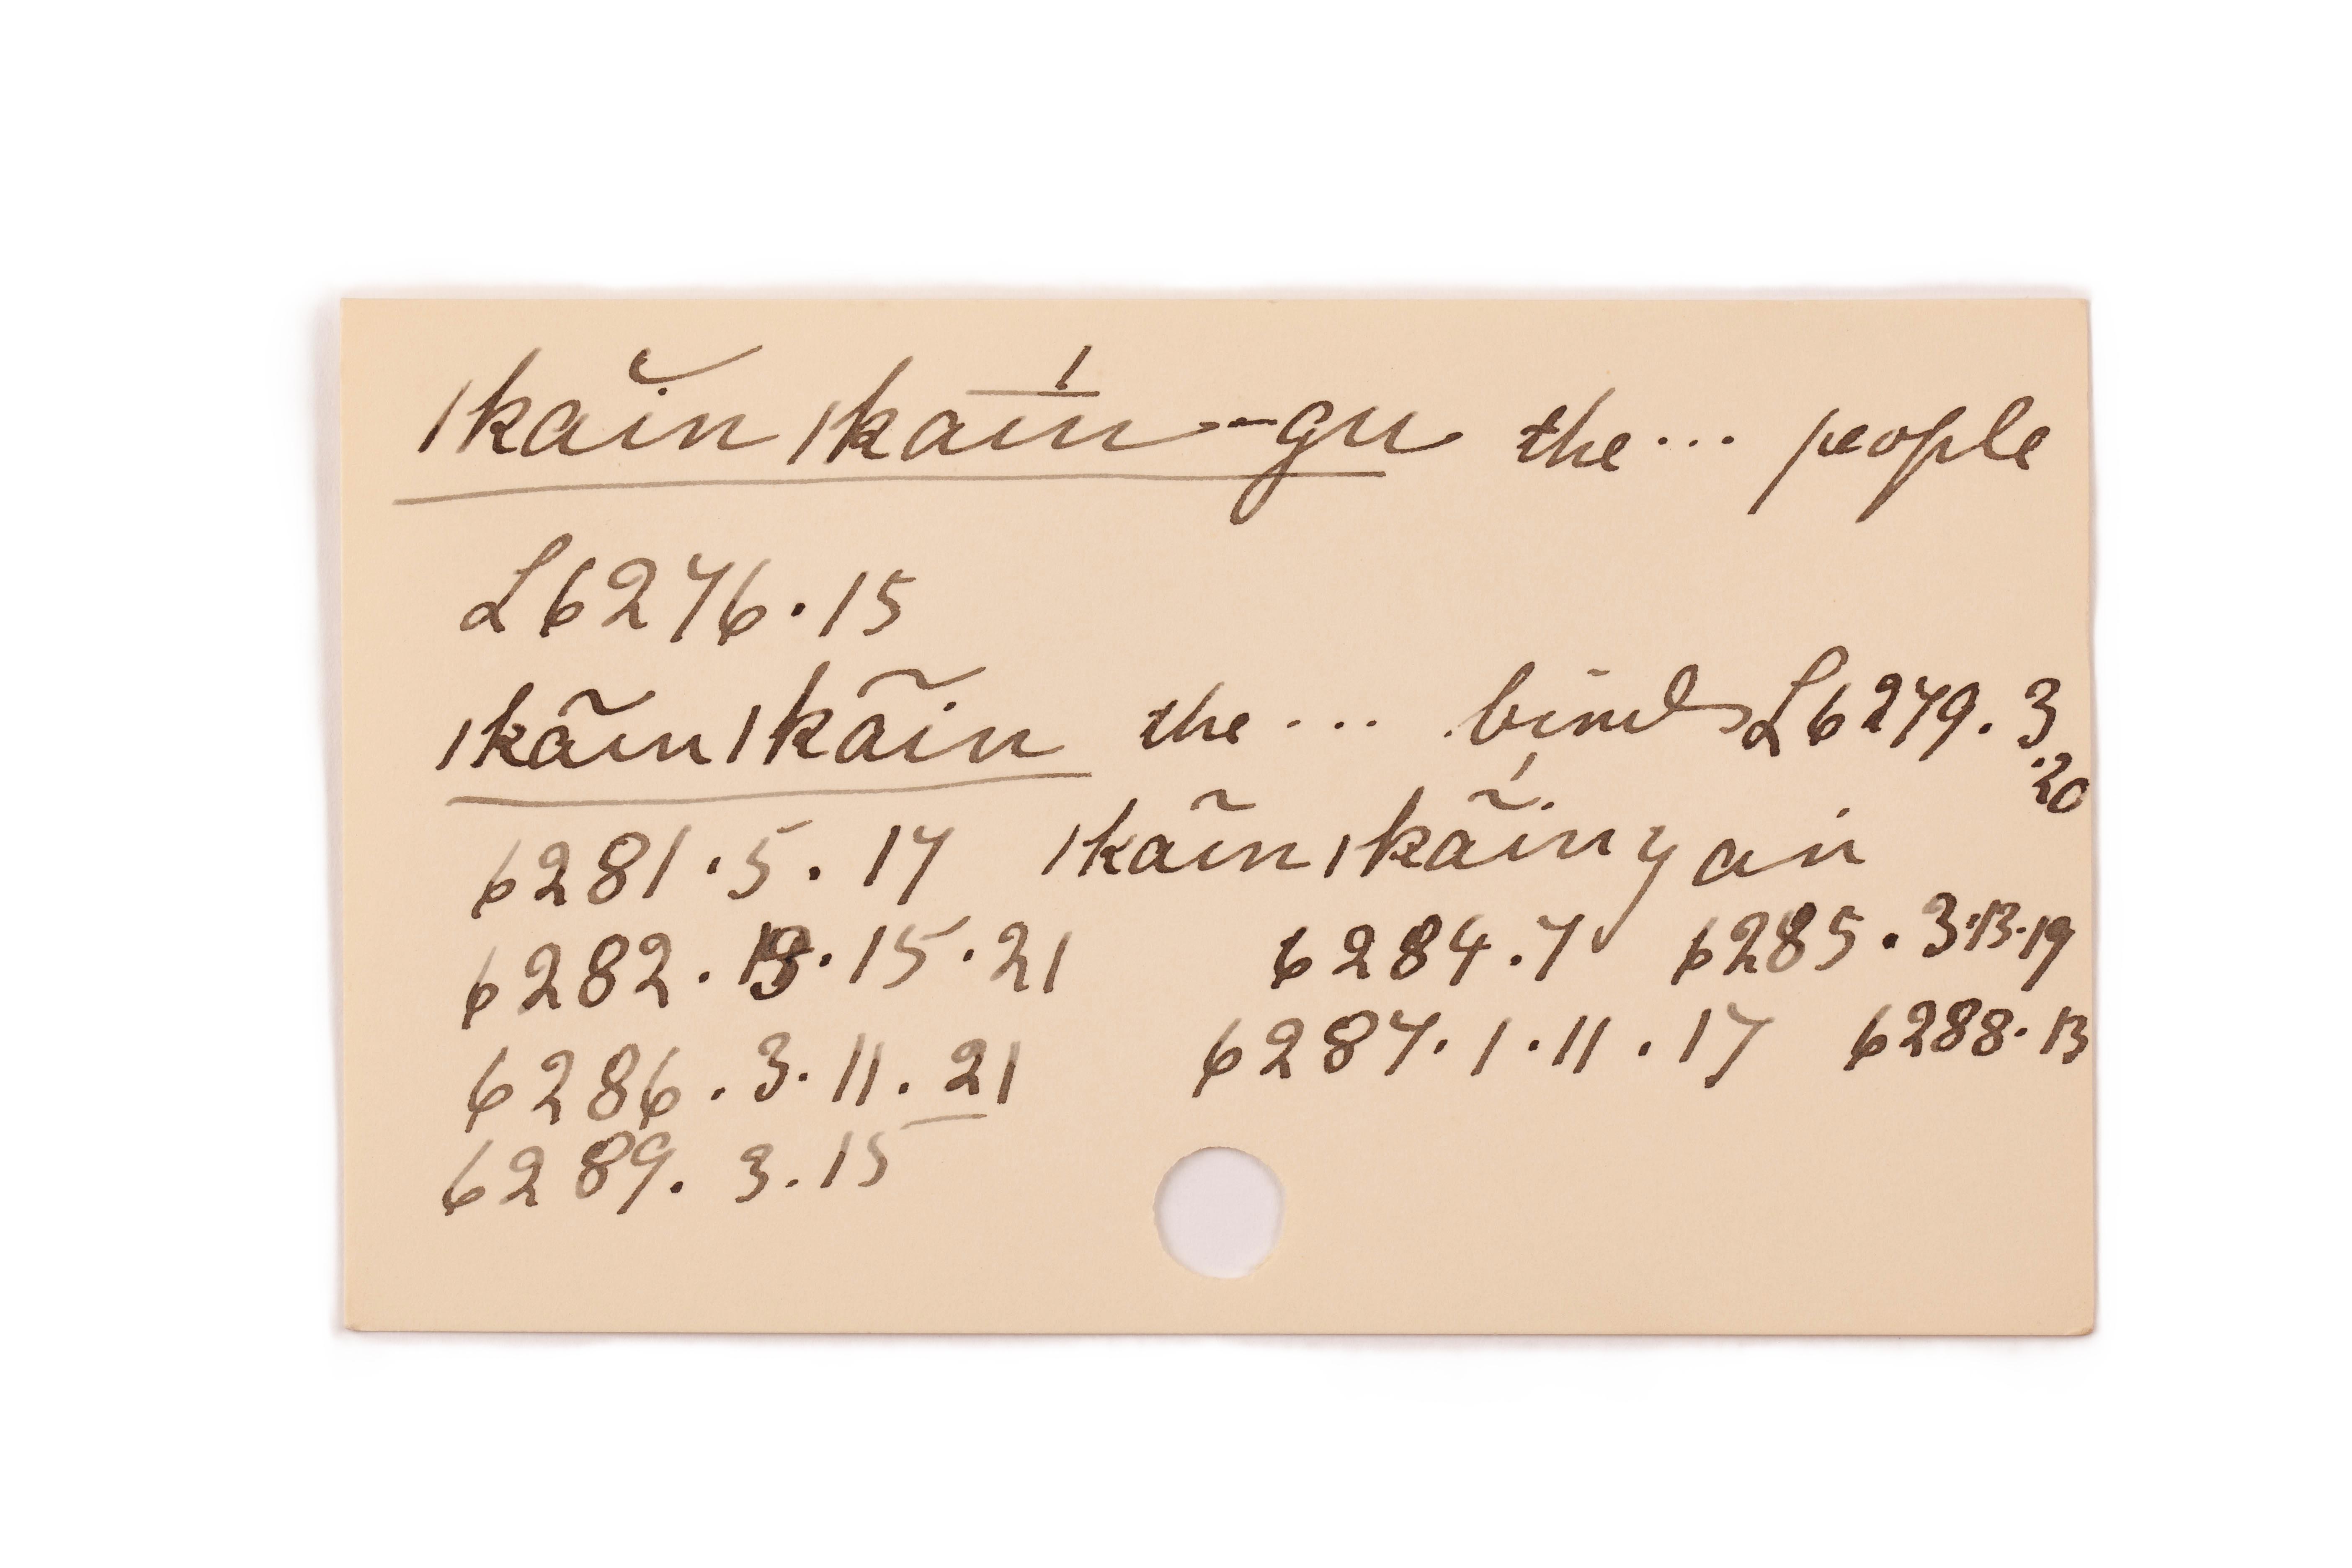 |kaĭn |kaīń--gu the... people
L6276.15
|kãin|kãin the... birds L6279.3
.20
6281.5.17 |kaĩn|kãíṅyaṅ
6282.13.15.21 6284.7 6285.3.13.19
6286.3.11.21 6287.1.11.17 6288.13
6289.3.15